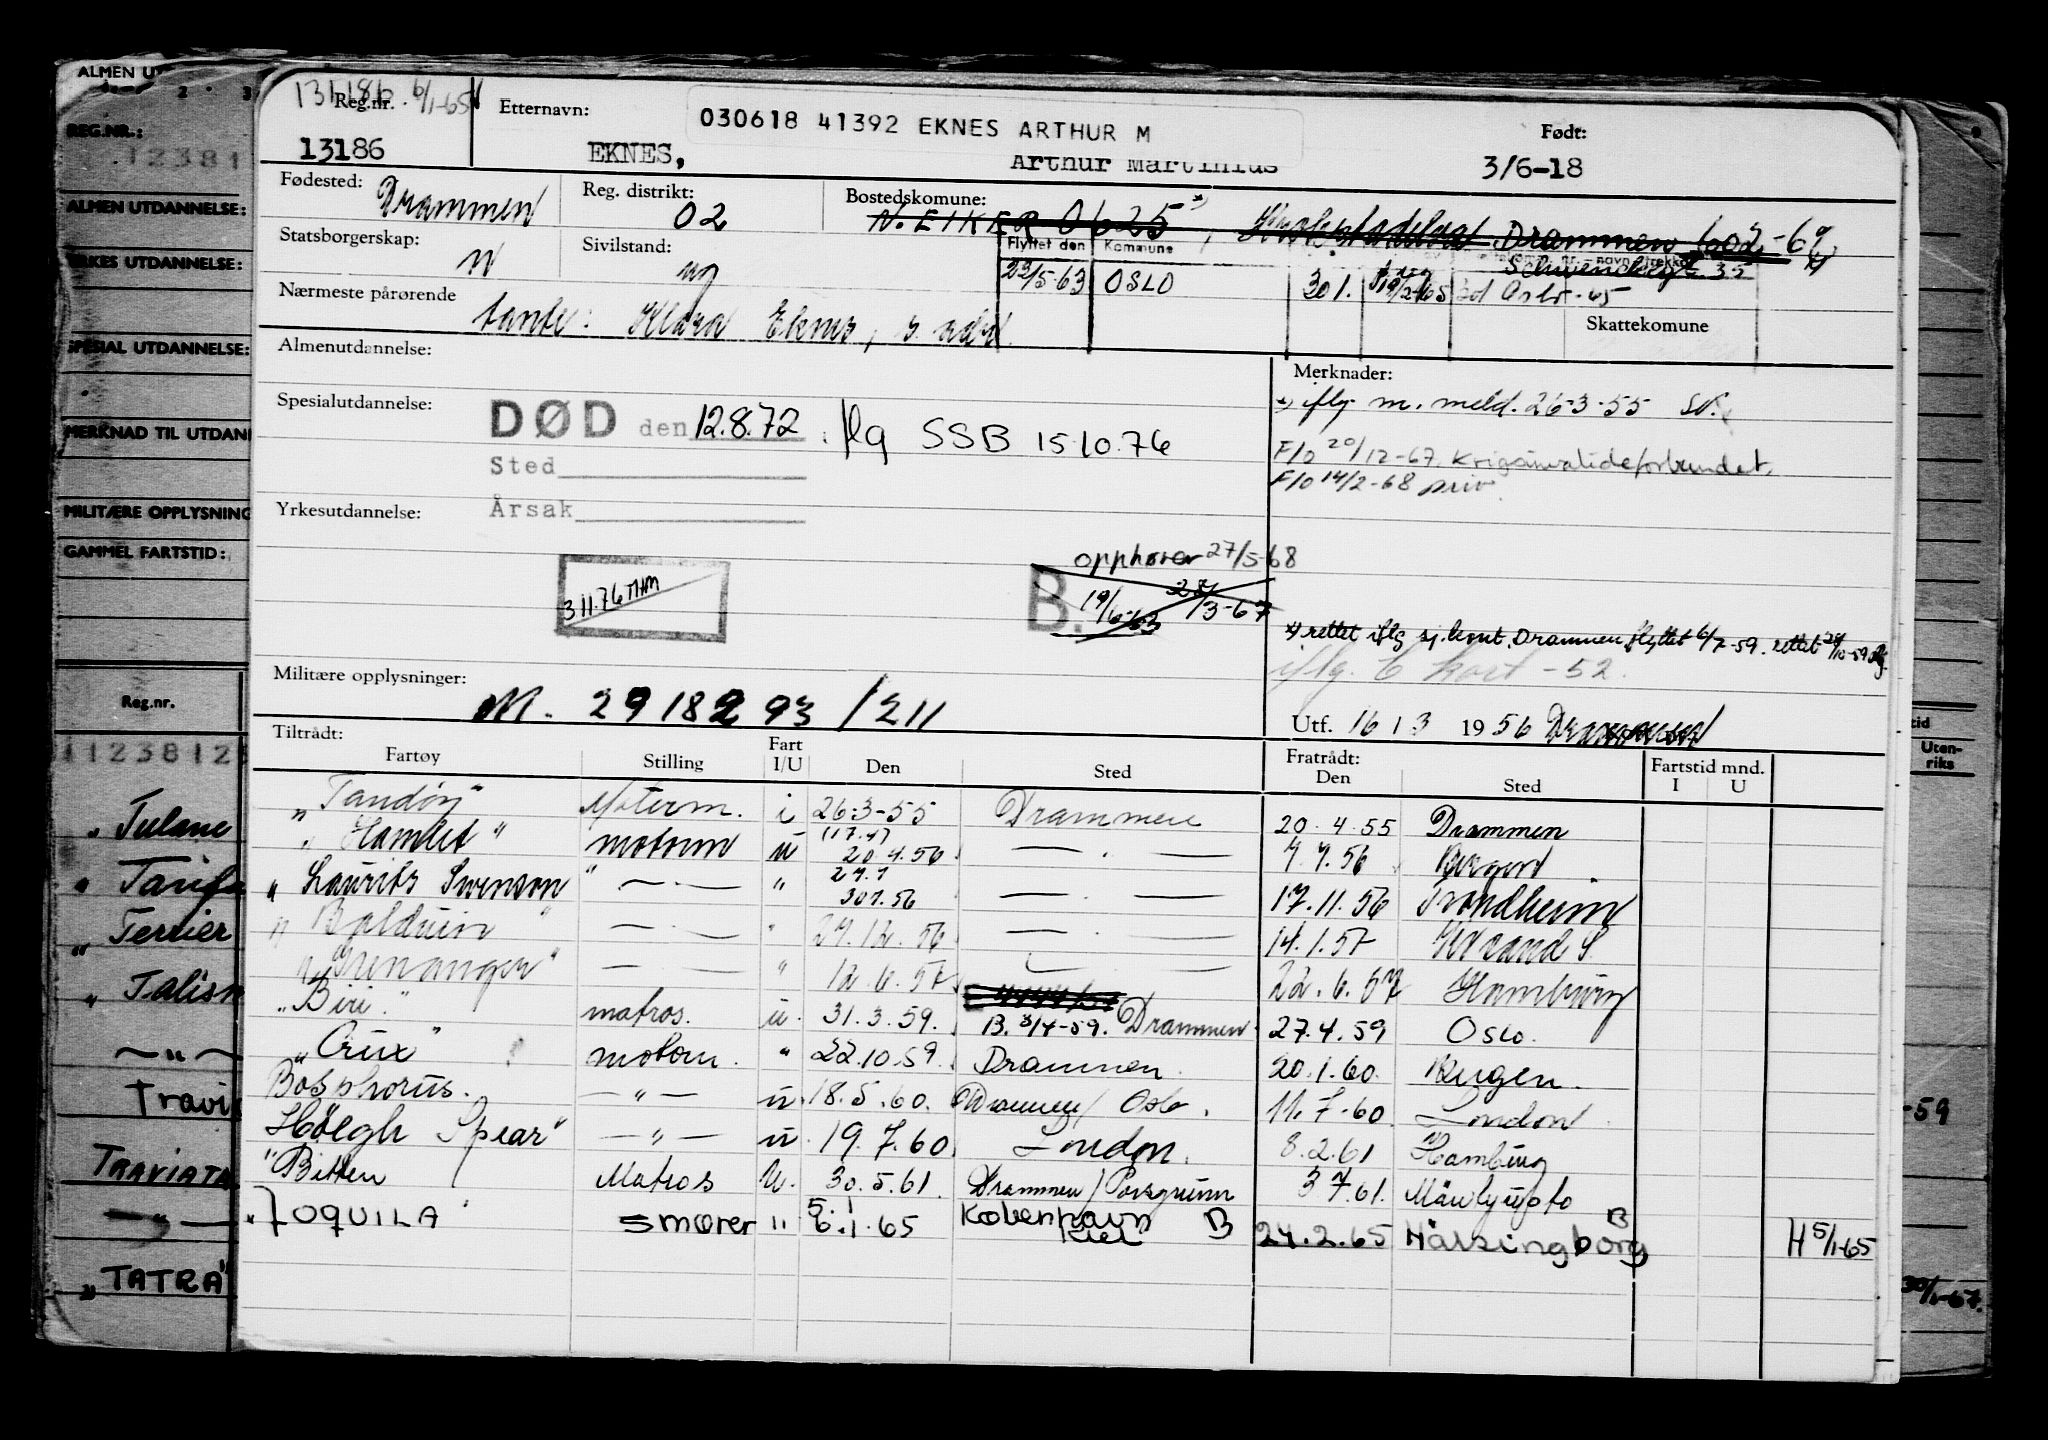 ALMEN U
2 3
REG.NR.:
12381
ALMEN UTDANNELSE:
RKES UTDANNELSE:
SPESIAL UTDANNELSE:
MERKNAD TIL UTDAN
MILITÆRE OPPLYSNING
GAMMEL FARTSTID:
Reg.nr.
1123812
" Tulane
Terrier
" Talis
— " —
Travi
TRAVIATA
— " —
"TATRA"
tid
Uten-
riks
-59
30/1-67.
13186 6/1-65
Reg.nr.
13186
Etternavn:
030618 41392 EKNES ARTHUR M
EKNES, Arthur Martinius
Født:
3/6-18
Fødested: Drammen
Reg. distrikt: 02
Bostedskomune: N. EIKER 0625 *) , Drammen 602 -69
Statsborgerskap: N
Sivilstand: ug
Flyttet den Kommune
23/5-63 OSLO 301. Oslo -65
Schwencksgt. 35
Skattekomune
Nærmeste pårørende tante: Klara Eknes, s. adr.
Almenutdannelse:
Spesialutdannelse:
DØD den 12.8.72 iflg SSB 15.10.76
Sted
Årsak
Yrkesutdannelse:
3 11.76 MHM
opphører 27/5-68
B. 19/10-63 28/3-67
Merknader:
*) iflg. m. meld. 26-3-55 SV.
F/o 20/12-67. Krigsinvalideforbundet.
F/o 14/2-68 priv.
*) rettet iflg sj.kont. Drammen, flyttet 6/7-59. rettet 28/10-59
iflg. 6 kort -52.
Militære opplysninger:
M. 2918293/211
Utf. 16 / 3 1956 Drammen
Tiltrådt:
Fartøy Stilling Fart I/U Den Sted Fratrådt: Den Sted Fartstid mnd. I U
"Tandøy" Moterm. i 26-3-55 Drammen 20.4.55 Drammen
"Hamlet" motorm u (17.4) 20.4.56 — . — 7.7.56 Bergen
"Laurits Swenson " — . — " 27.7 30.7.56 — . — 17.11.56 Trondheim
"Balduin" — . — " 27.12.56 — . — 14.1.57 Kr.sand S
"Grenanger" — . — " 12.6.57 — . — 22.6.57 Hamburg
"Biri." matros. u. 31.3.59. B. 3/4-59. Drammen 27.4.59 Oslo.
"Crux" motorm. " 22.10.59. Drammen. 20.1.60. Bergen.
Bosphorus. — " — u. 18.5.60. Drammen/ Oslo. 11.7-60 London
Höegh Spear" — " — u. 19.7.60 London. 8.2.61 Hamburg
"Bitten Matros U. 30.5.61. Drammen/Porsgrunn 3 7.61. Mäntyluoto
TOQUILA smører " 5.1 6.1.65 København Kiel B 24.2.65 Hälsingborg B H 5/1-65